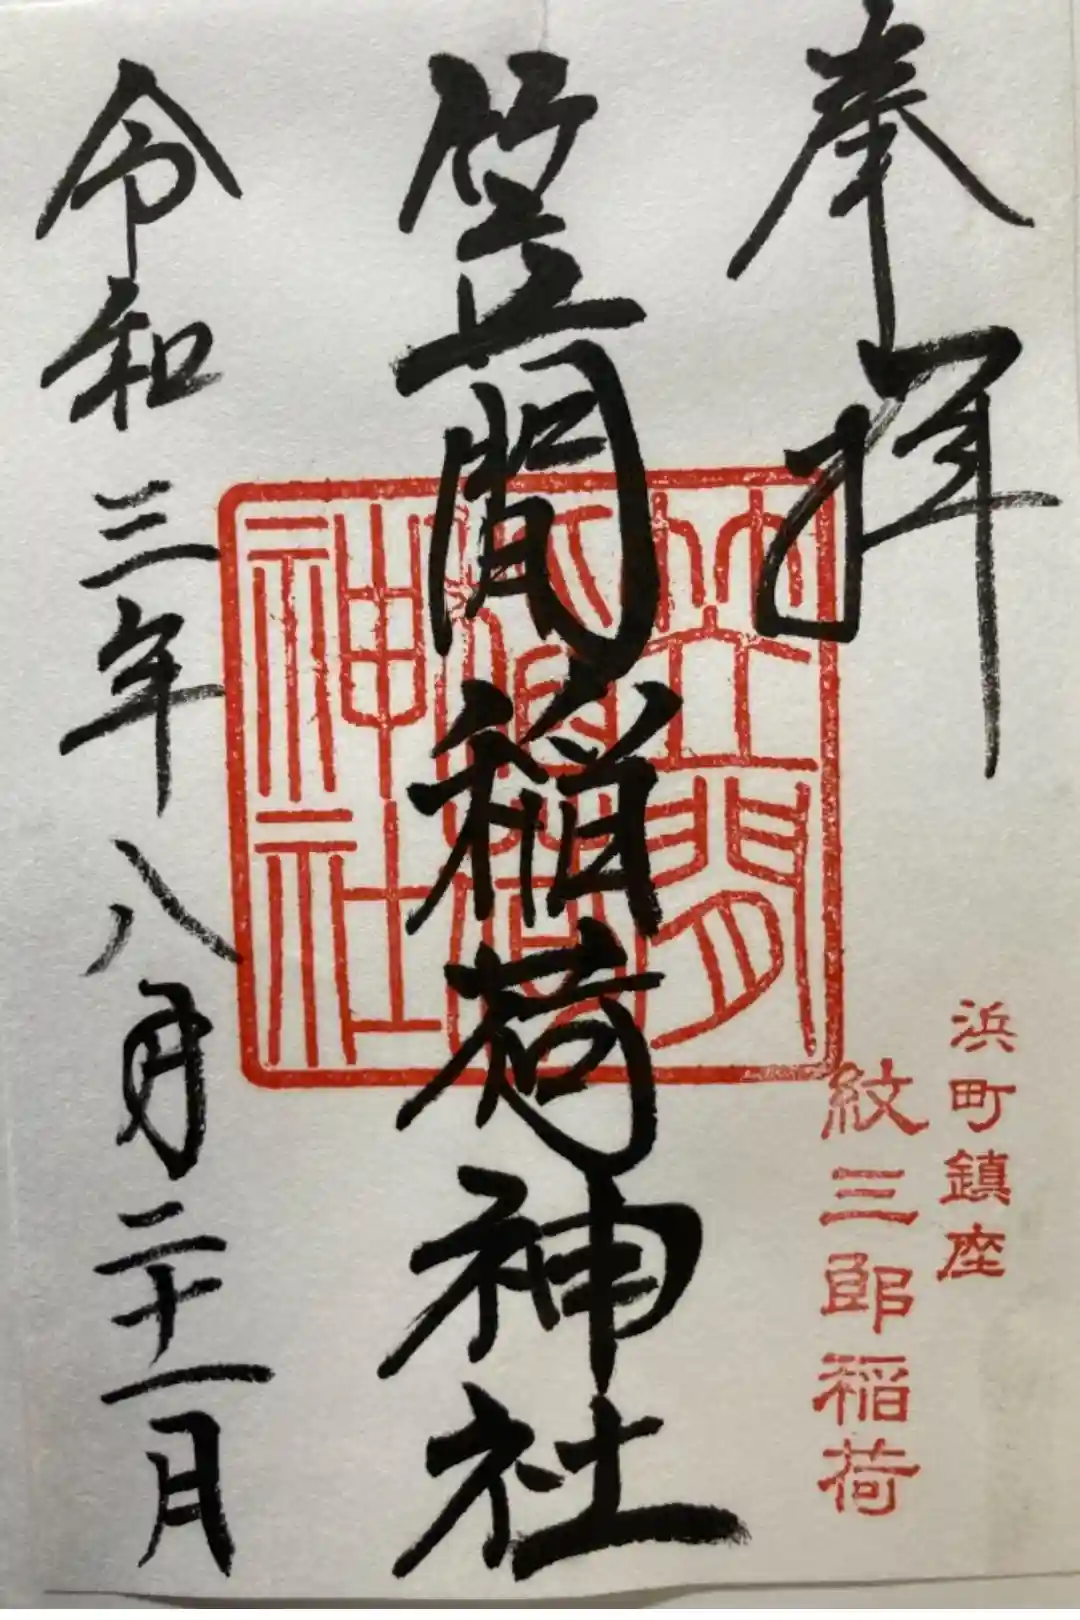 奉拝
浜町鎮座
紋三郎稲荷
笠間稲荷神社
笠間
稲荷
神社
令和三年八月二十一日